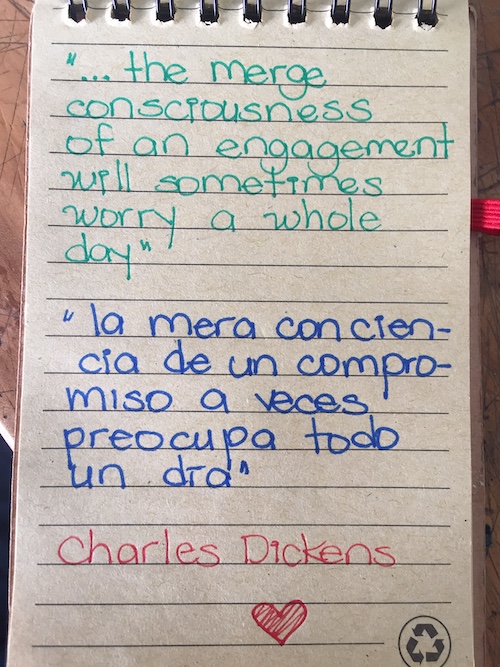 "... the merge
consciousness
of an engagement
will sometimes
worry a whole
day"
"la mera concien-
cia de un compro-
miso a veces
preocupa todo
un día"
Charles Dickens